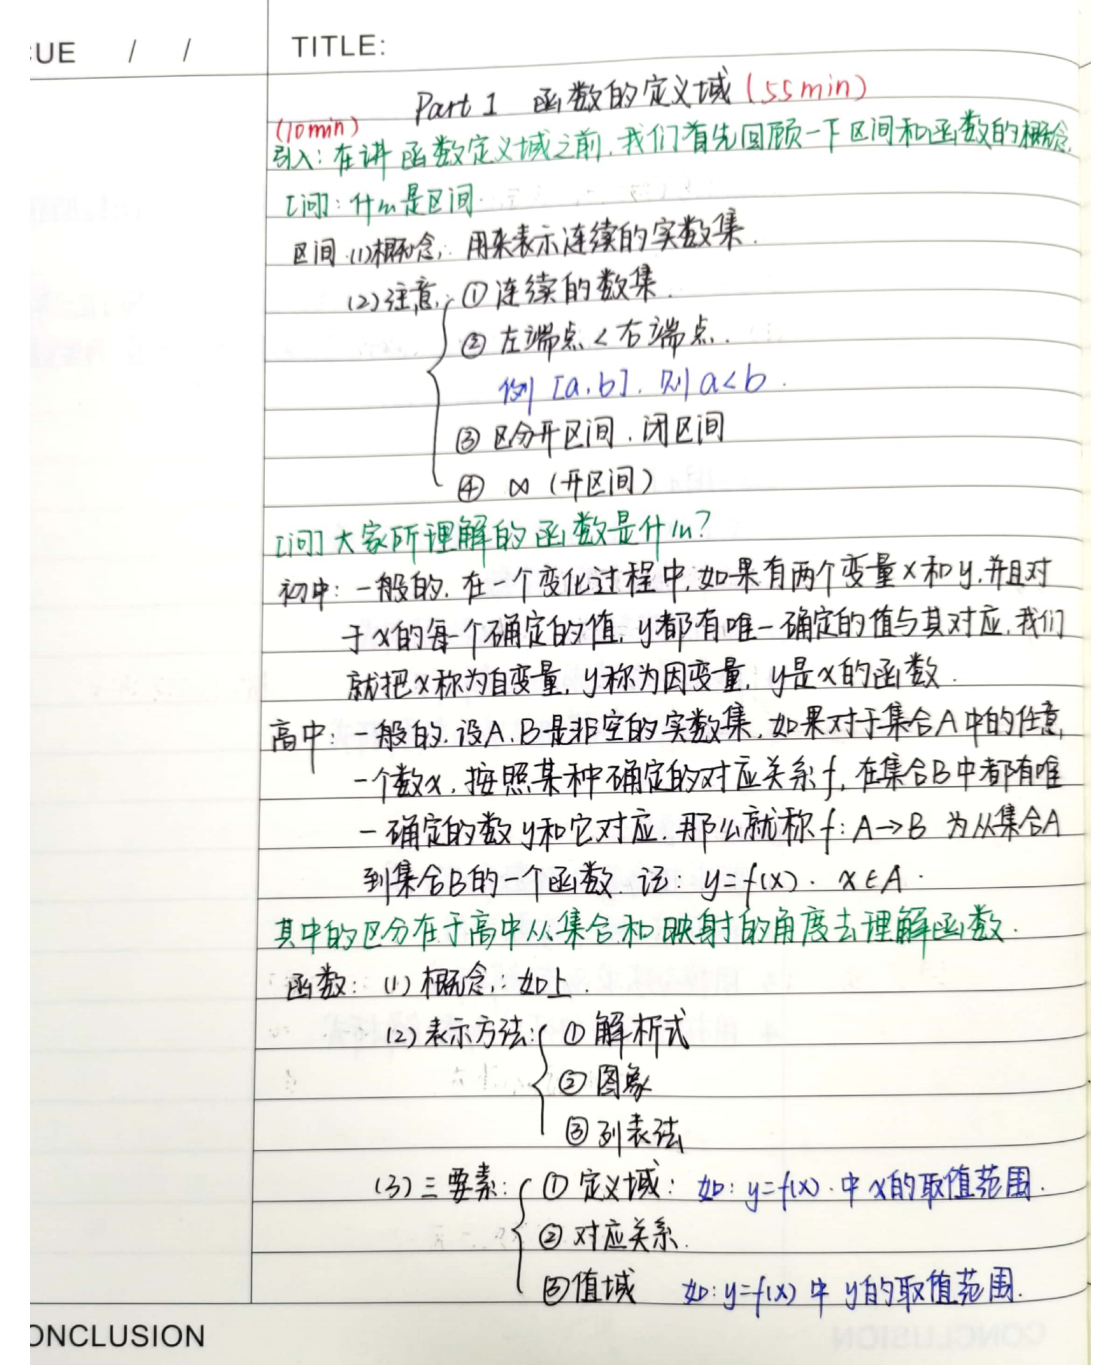 CUE / /
TITLE:
Part 1 函数的定义域 (55min)
(10min)
引入: 在讲函数定义域之前, 我们首先回顾一下区间和函数的概念.
[问]: 什m是区间
区间 (1)概念: 用来表示连续的实数集.
(2)注意: ① 连续的数集.
② 左端点 < 右端点.
例 [a, b]. 则 a<b.
③ 区分开区间、闭区间
④ ∞ (开区间)
[问] 大家所理解的函数是什m?
初中: 一般的, 在一个变化过程中, 如果有两个变量x和y, 并且对
于x的每一个确定的值, y都有唯一确定的值与其对应, 我们
就把x称为自变量, y称为因变量, y是x的函数.
高中: 一般的, 设A、B是非空的实数集, 如果对于集合A中的任意
一个数x, 按照某种确定的对应关系f, 在集合B中都有唯
一确定的数y和它对应, 那么就称 f: A→B 为从集合A
到集合B的一个函数 记: y=f(x). x∈A.
其中的区分在于高中从集合和映射的角度去理解函数.
函数: (1) 概念: 如上.
(2) 表示方法: ① 解析式
② 图象
③ 列表法
(3) 三要素: ① 定义域: 如: y=f(x). 中 x的取值范围.
② 对应关系.
③ 值域 如: y=f(x) 中 y的取值范围.
ONCLUSION